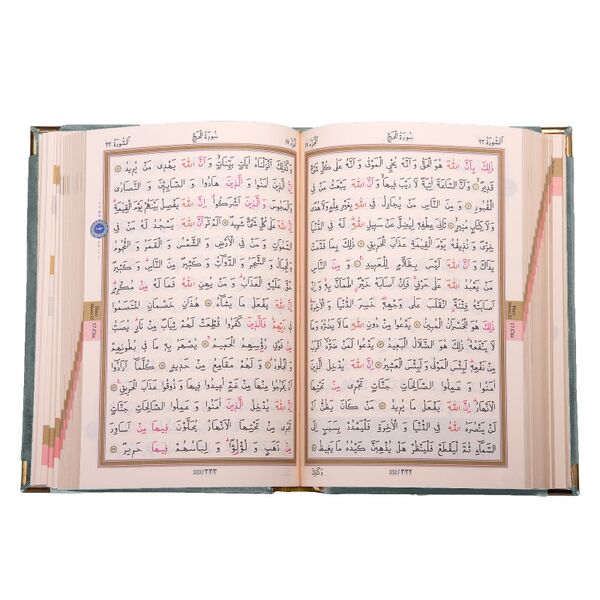 اَلسُّورَةُ ٢٢ سُورَةُ الْحَجِّ اَلْجُزْءُ ١٧
ذٰلِكَ بِاَنَّ اللّٰهَ هُوَ الْحَقُّ وَاَنَّهُ يُحْيِ الْمَوْتٰى وَاَنَّهُ عَلٰى كُلِّ شَيْءٍ
قَدِيرٌ وَاَنَّ السَّاعَةَ اٰتِيَةٌ لَا رَيْبَ فِيهَا وَاَنَّ اللّٰهَ يَبْعَثُ مَنْ فِي
الْقُبُورِ وَمِنَ النَّاسِ مَنْ يُجَادِلُ فِي اللّٰهِ بِغَيْرِ عِلْمٍ وَلَا هُدًى
وَلَا كِتَابٍ مُنِيرٍ ثَانِيَ عِطْفِهِ لِيُضِلَّ عَنْ سَبِيلِ اللّٰهِ لَهُ فِي الدُّنْيَا
خِزْيٌ وَنُذِيقُهُ يَوْمَ الْقِيٰمَةِ عَذَابَ الْحَرِيقِ ذٰلِكَ بِمَا قَدَّمَتْ
يَدَاكَ وَاَنَّ اللّٰهَ لَيْسَ بِظَلَّامٍ لِلْعَبِيدِ وَمِنَ النَّاسِ مَنْ
يَعْبُدُ اللّٰهَ عَلٰى حَرْفٍ فَاِنْ اَصَابَهُ خَيْرٌ اطْمَاَنَّ بِهِ وَاِنْ
اَصَابَتْهُ فِتْنَةٌ انْقَلَبَ عَلٰى وَجْهِهِ خَسِرَ الدُّنْيَا وَالْاٰخِرَةَ
ذٰلِكَ هُوَ الْخُسْرَانُ الْمُبِينُ يَدْعُوا مِنْ دُونِ اللّٰهِ مَا لَا يَضُرُّهُ وَمَا
لَا يَنْفَعُهُ ذٰلِكَ هُوَ الضَّلَالُ الْبَعِيدُ يَدْعُوا لَمَنْ ضَرُّهُ اَقْرَبُ
مِنْ نَفْعِهِ لَبِئْسَ الْمَوْلٰى وَلَبِئْسَ الْعَشِيرُ اِنَّ اللّٰهَ يُدْخِلُ
الَّذِينَ اٰمَنُوا وَ عَمِلُوا الصَّالِحَاتِ جَنَّاتٍ تَجْرِي مِنْ تَحْتِهَا
الْاَنْهَارُ اِنَّ اللّٰهَ يَفْعَلُ مَا يُرِيدُ مَنْ كَانَ يَظُنُّ اَنْ
لَنْ يَنْصُرَهُ اللّٰهُ فِي الدُّنْيَا وَالْاٰخِرَةِ فَلْيَمْدُدْ بِسَبَبٍ اِلَى
السَّمَاءِ ثُمَّ لْيَقْطَعْ فَلْيَنْظُرْ هَلْ يُذْهِبَنَّ كَيْدُهُ مَا يَغِيظُ
332/٣٣٢
اَلسُّورَةُ ٢٢ سُورَةُ الْحَجِّ اَلْجُزْءُ ١٧
وَكَذٰلِكَ اَنْزَلْنَاهُ اٰيَاتٍ بَيِّنَاتٍ وَ اَنَّ اللّٰهَ يَهْدِي مَنْ يُرِيدُ
اِنَّ الَّذِينَ اٰمَنُوا وَ الَّذِينَ هَادُوا وَ الصَّابِئِينَ وَ النَّصَارٰى
وَ الْمَجُوسَ وَ الَّذِينَ اَشْرَكُوا اِنَّ اللّٰهَ يَفْصِلُ بَيْنَهُمْ يَوْمَ الْقِيٰمَةِ
اِنَّ اللّٰهَ عَلٰى كُلِّ شَيْءٍ شَهِيدٌ اَلَمْ تَرَ اَنَّ اللّٰهَ يَسْجُدُ لَهُ مَنْ فِي
السَّمٰوَاتِ وَ مَنْ فِي الْاَرْضِ وَ الشَّمْسُ وَ الْقَمَرُ وَ النُّجُومُ
وَ الْجِبَالُ وَ الشَّجَرُ وَ الدَّوَابُّ وَ كَثِيرٌ مِنَ النَّاسِ وَ كَثِيرٌ
حَقَّ عَلَيْهِ الْعَذَابُ وَ مَنْ يُهِنِ اللّٰهُ فَمَا لَهُ مِنْ مُكْرِمٍ
اِنَّ اللّٰهَ يَفْعَلُ مَا يَشَاءُ هٰذَانِ خَصْمَانِ اخْتَصَمُوا
فِي رَبِّهِمْ فَالَّذِينَ كَفَرُوا قُطِّعَتْ لَهُمْ ثِيَابٌ مِنْ نَارٍ يُصَبُّ
مِنْ فَوْقِ رُؤُسِهِمُ الْحَمِيمُ يُصْهَرُ بِهِ مَا فِي بُطُونِهِمْ
وَ الْجُلُودُ وَ لَهُمْ مَقَامِعُ مِنْ حَدِيدٍ كُلَّمَا اَرَادُوا
اَنْ يَخْرُجُوا مِنْهَا مِنْ غَمٍّ اُعِيدُوا فِيهَا وَ ذُوقُوا عَذَابَ الْحَرِيقِ
اِنَّ اللّٰهَ يُدْخِلُ الَّذِينَ اٰمَنُوا وَ عَمِلُوا الصَّالِحَاتِ جَنَّاتٍ
تَجْرِي مِنْ تَحْتِهَا الْاَنْهَارُ يُحَلَّوْنَ فِيهَا مِنْ اَسَاوِرَ
مِنْ ذَهَبٍ وَ لُؤْلُؤًا وَ لِبَاسُهُمْ فِيهَا حَرِيرٌ
333/٣٣٣
17.Cüz
17.Cüz